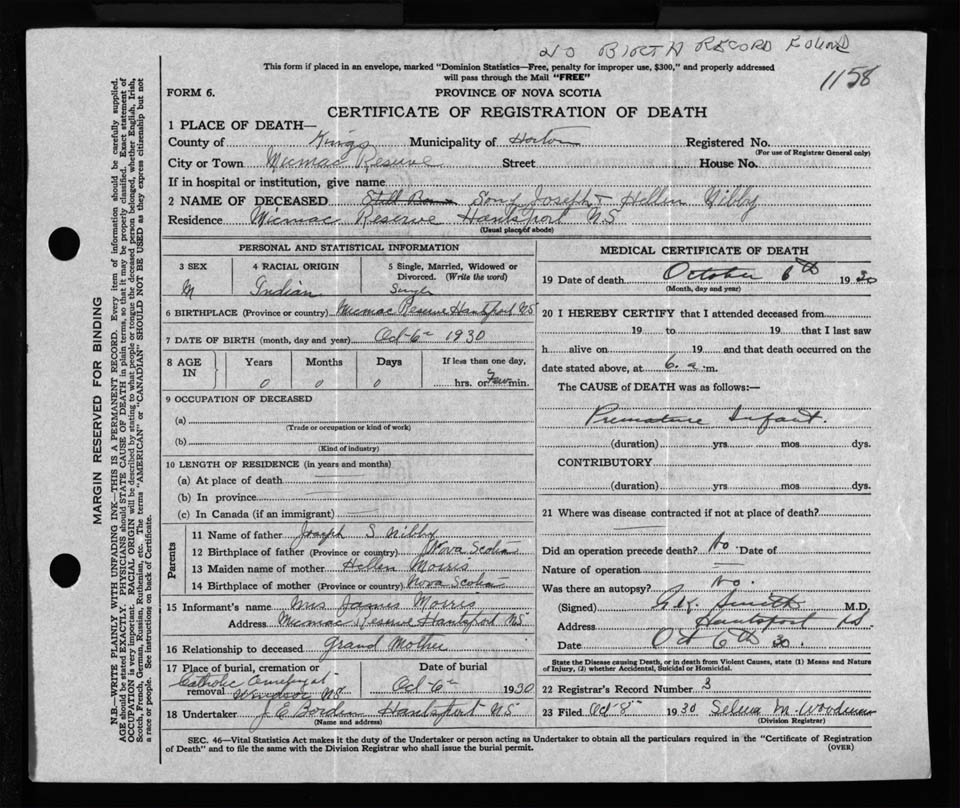 NO BIRTH RECORD FOUND
This form if placed in an envelope, marked "Dominion Statistics—Free, penalty for improper use, $300," and properly addressed
will pass through the Mail "FREE"
1158
FORM 6.
PROVINCE OF NOVA SCOTIA
CERTIFICATE OF REGISTRATION OF DEATH
1 PLACE OF DEATH—
County of Kings Municipality of Horton Registered No.
(For use of Registrar General only)
City or Town Micmac Reserve Street House No.
If in hospital or institution, give name
2 NAME OF DECEASED Still Born Son of Joseph & Hellen Nibby
Residence Micmac Reserve Hantsport NS
(Usual place of abode)
PERSONAL AND STATISTICAL INFORMATION
3 SEX
M
4 RACIAL ORIGIN
Indian
5 Single, Married, Widowed or
Divorced. (Write the word)
Single
6 BIRTHPLACE (Province or country) Micmac Reserve Hantsport NS
7 DATE OF BIRTH (month, day and year) Oct 6th 1930
8 AGE
IN
Years
0
Months
0
Days
0
If less than one day,
hrs. or Few min.
9 OCCUPATION OF DECEASED
(a)
(Trade or occupation or kind of work)
(b)
(Kind of industry)
10 LENGTH OF RESIDENCE (in years and months)
(a) At place of death
(b) In province
(c) In Canada (if an immigrant)
Parents
11 Name of father Joseph S Nibby
12 Birthplace of father (Province or country) Nova Scotia
13 Maiden name of mother Hellen Morris
14 Birthplace of mother (Province or country) Nova Scotia
15 Informant's name Mrs James Morris
Address Micmac Reserve Hantsport NS
16 Relationship to deceased Grand Mother
17 Place of burial, cremation or
removal Catholic Cemetery at
Windsor NS
Date of burial
Oct 6th 1930
18 Undertaker J E Borden Hantsport NS
(Name and address)
MEDICAL CERTIFICATE OF DEATH
19 Date of death October 6th 1930
(Month, day and year)
20 I HEREBY CERTIFY that I attended deceased from
19 to 19 that I last saw
h alive on 19 and that death occurred on the
date stated above, at 6. a. m.
The CAUSE of DEATH was as follows:—
Premature Infant.
(duration) yrs mos dys.
CONTRIBUTORY
(duration) yrs mos dys.
21 Where was disease contracted if not at place of death?
Did an operation precede death? No Date of
Nature of operation
Was there an autopsy? No.
(Signed) Smith M.D.
Address Hantsport NS.
Date Oct 6th 30.
State the Disease causing Death, or in death from Violent Causes, state (1) Means and Nature
of Injury, (2) whether Accidental, Suicidal or Homicidal.
22 Registrar's Record Number 3
23 Filed Oct 8th 1930 Selina M. Woodman
(Division Registrar)
SEC. 46—Vital Statistics Act makes it the duty of the Undertaker or person acting as Undertaker to obtain all the particulars required in the "Certificate of Registration
of Death" and to file the same with the Division Registrar who shall issue the burial permit.
(OVER)
MARGIN RESERVED FOR BINDING
N.B.—WRITE PLAINLY WITH UNFADING INK—THIS IS A PERMANENT RECORD. Every item of information should be carefully supplied.
AGE should be stated EXACTLY. PHYSICIANS should STATE CAUSE OF DEATH in plain terms, so that it may be properly classified. Exact statement of
OCCUPATION is very important. RACIAL ORIGIN will be described by stating to what people or tongue the deceased person belonged, whether English, Irish,
Scotch, French, German, Russian, Ruthenian, etc. The terms "AMERICAN" or "CANADIAN" SHOULD NOT BE USED as they express citizenship but not
a race or people. See instructions on back of Certificate.